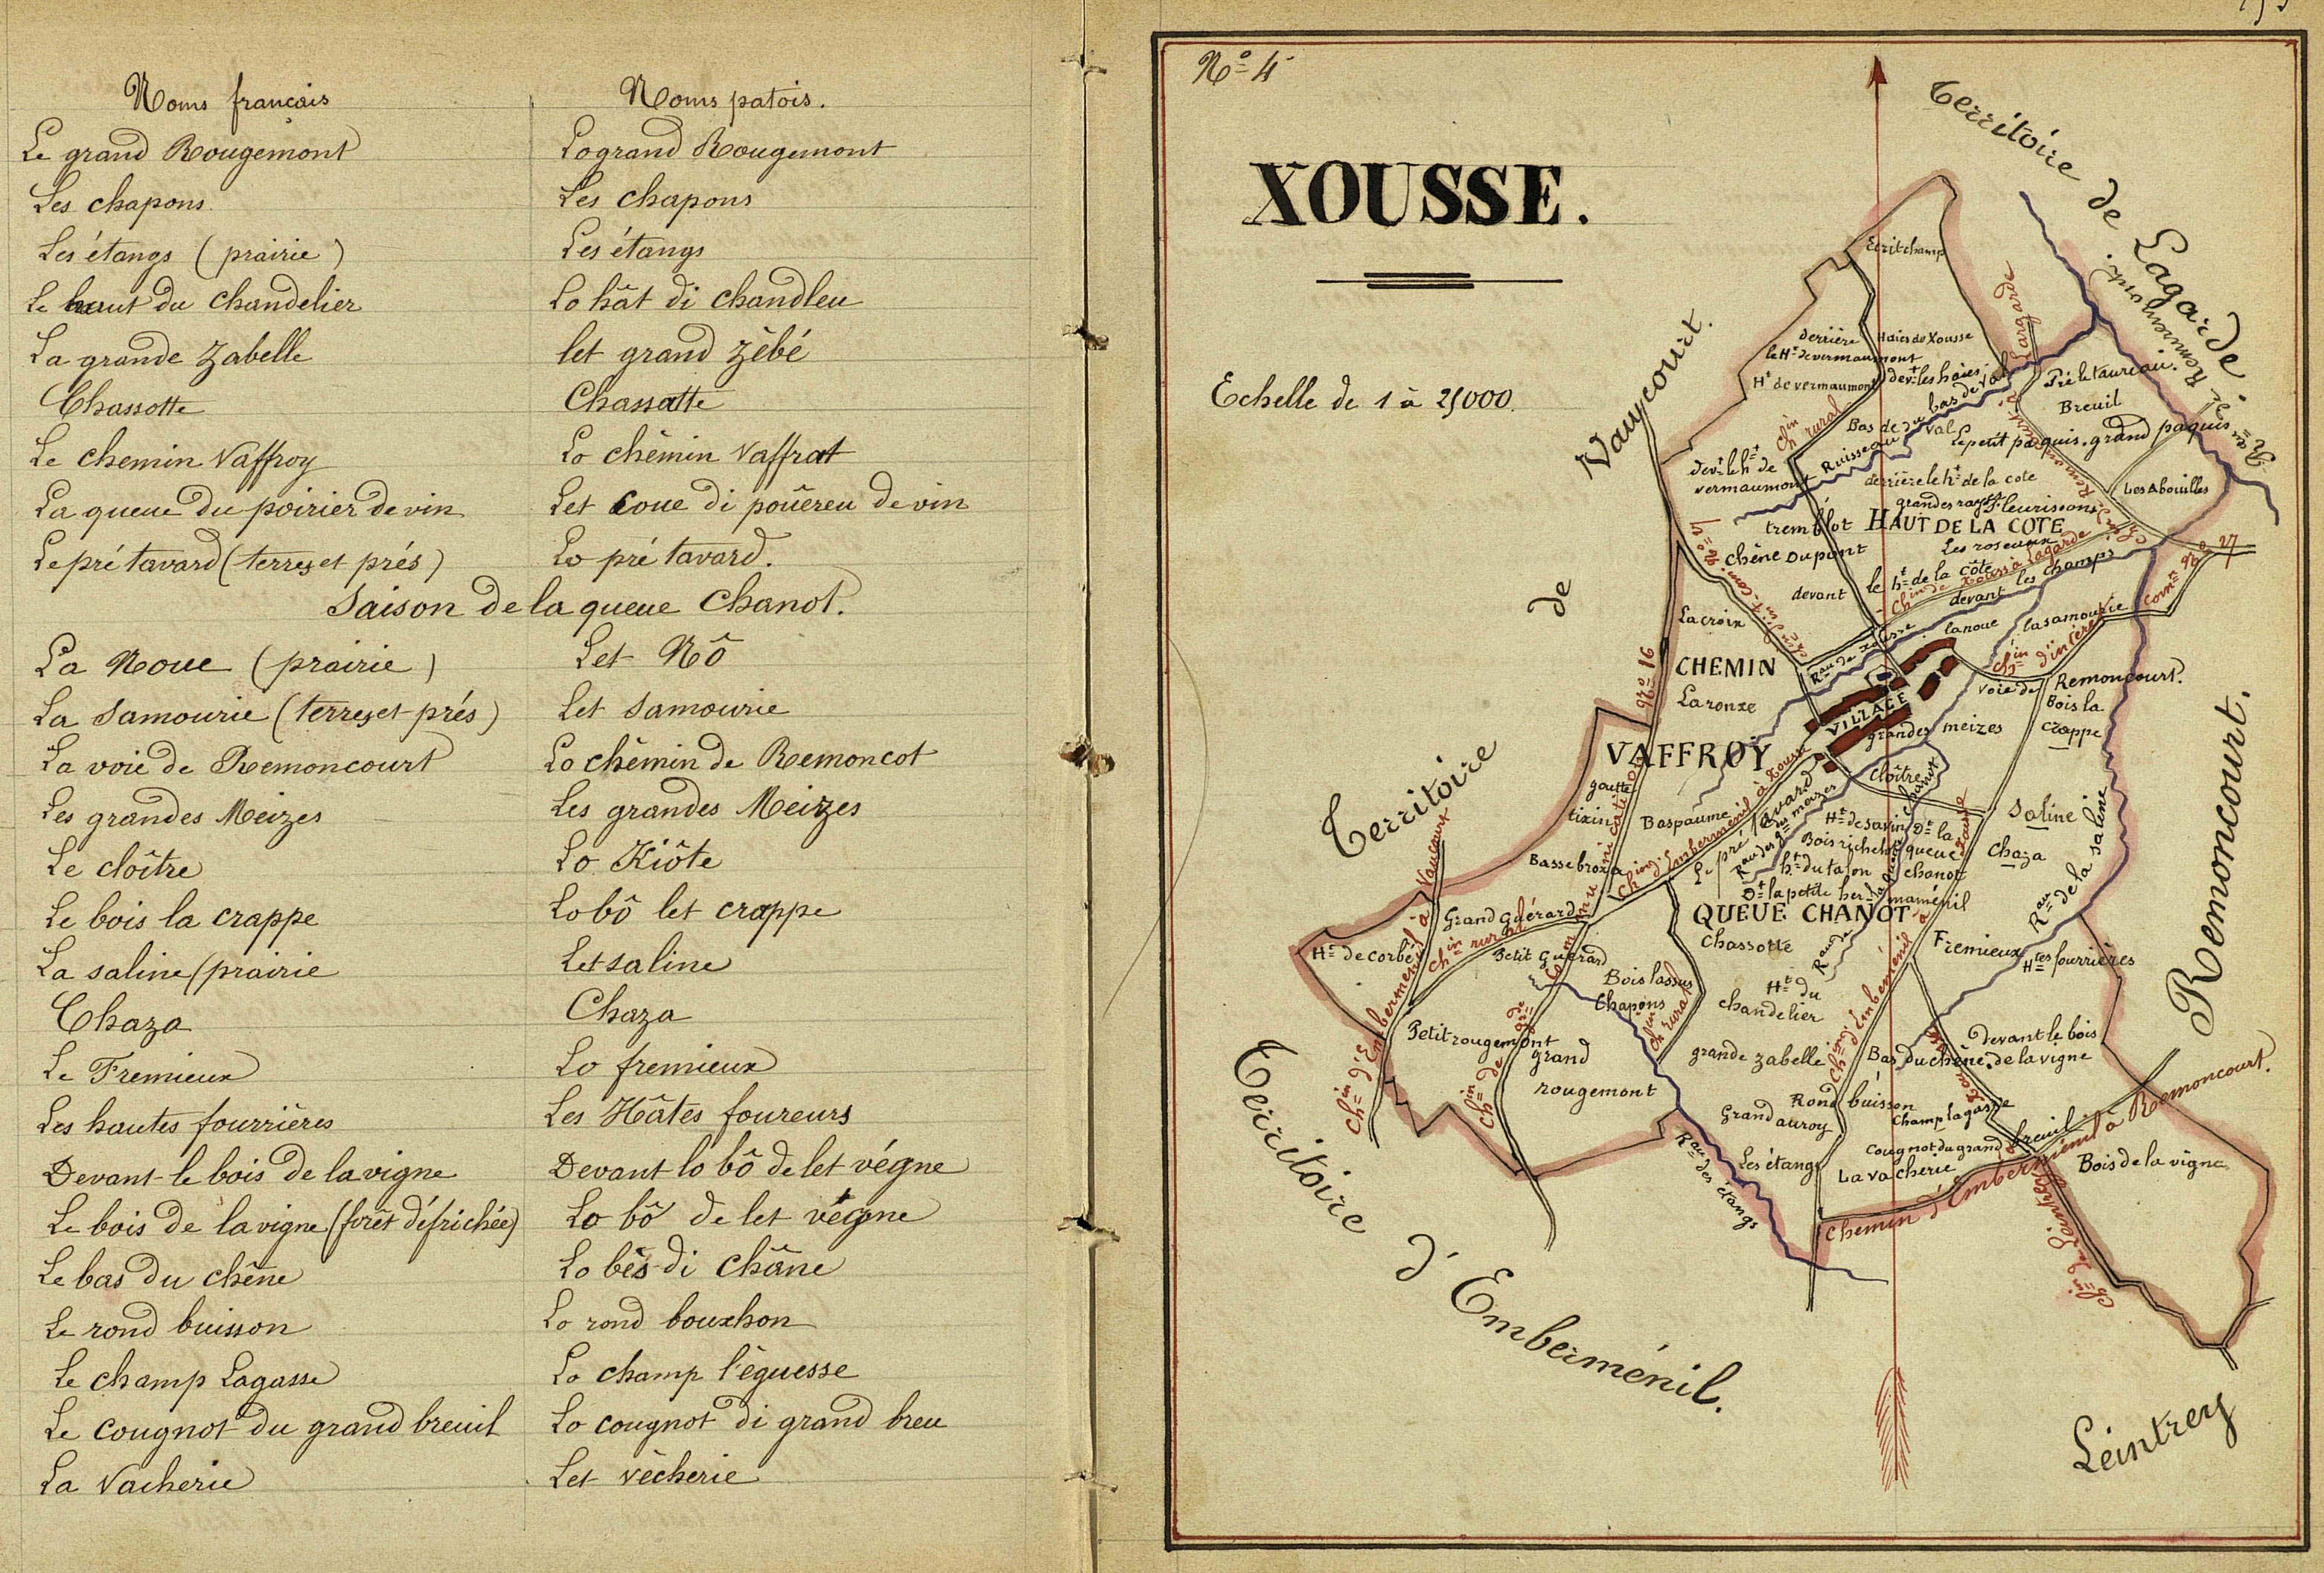 Noms français Noms patois.
Le grand Rougemont Lo grand Rougemont
Les chapons Les chapons
Les étangs (prairie) Les étangs
Le haut du chandelier Lo hât di chandleu
La grande Zabelle let grand zêbé
Chassotte Chassatte
Le chemin Vaffroy Lo chêmin Vaffrat
La queue du poirier de vin Let coue di pouêreu de vin
Le pré tavard (terres et prés) Lo pré tavard.
Saison de la queue Chanot.
La Noue (prairie) Let Nô
La Samourie (terres et prés) Let Samourie
La voie de Remoncourt Lo chêmin de Remoncot
Les grandes Meizes Les grandes Meizes
Le cloître Lo Kiôte
Le bois la crappe Lo bô let crappe
La saline (prairie Let saline
Chaza Chaza
Le Fremieux Lo fremieux
Les hautes fourrières Les Hâtes foureurs
Devant le bois de la vigne Devant lo bô de let végne
Le bois de la vigne (forêt défrichée) Lo bô de let végne
Le bas du chêne Lo bês di châne
Le rond buisson Lo rond bouxhon
Le champ Lagasse Lo champ l'êguesse
Le cougnot du grand breuil Lo cougnot di grand breu
La Vacherie Let vêcherie
No 4
XOUSSE.
Echelle de 1 à 25000.
Territoire de Lagarde
Territoire de Vaucourt.
Remoncourt.
Territoire d'Emberménil.
Leintrey
Ecritchamp
derrière
le Ht de vermaumont
Haies de Xousse
Ht de vermaumont
devt les haies
Pré le taureau.
Breuil
Bas de val
Ruisseau du bas de val
Le petit paquis. grand paquis
devt le ht de
vermaumont
derrière le ht de la cote
Les Abouilles
grandes rayes
Fleurissons
tremblot
HAUT DE LA COTE
Les roseaux
chêne Dupont
le ht de la côte
Chin de Xousse à Lagarde
devant les champs
devant
La croix
la noue
la samourie
Rau de Xousse
CHEMIN
VAFFROY
La ronxe
VILLAGE
voie de Remoncourt.
Bois la
crappe
grandes meizes
goutte
tixin
Baspaume
cloître
Saline
Chaza
Ht de savin
Dt la
queue
chanot
Bois richelot
ht du talon
Le pré tavard
Rau des gdes meizes
Rau de la saline
Basse broxa
Dt la petite hermaménil
QUEUE CHANOT
Chassotte
Grand Guérard
Ht de corbé
Petit Guérard
Bois lassus
Chapons
Ht du
chandelier
Fremieux
Htes fourrières
Petit rougemont
grand
rougemont
grande zabelle
Bas du chêne
Devant le bois
de la vigne
Rond buisson
Grand auroy
Champ lagasse
Cougnot du grand breuil
Les étangs
La vacherie
Bois de la vigne
Rau des étangs
Chemin d'Emberménil à Remoncourt.
Chin d'Emberménil à Vaucourt
Chind'Emberménil à Xousse
Chin rural
Chin rural
Chin rural